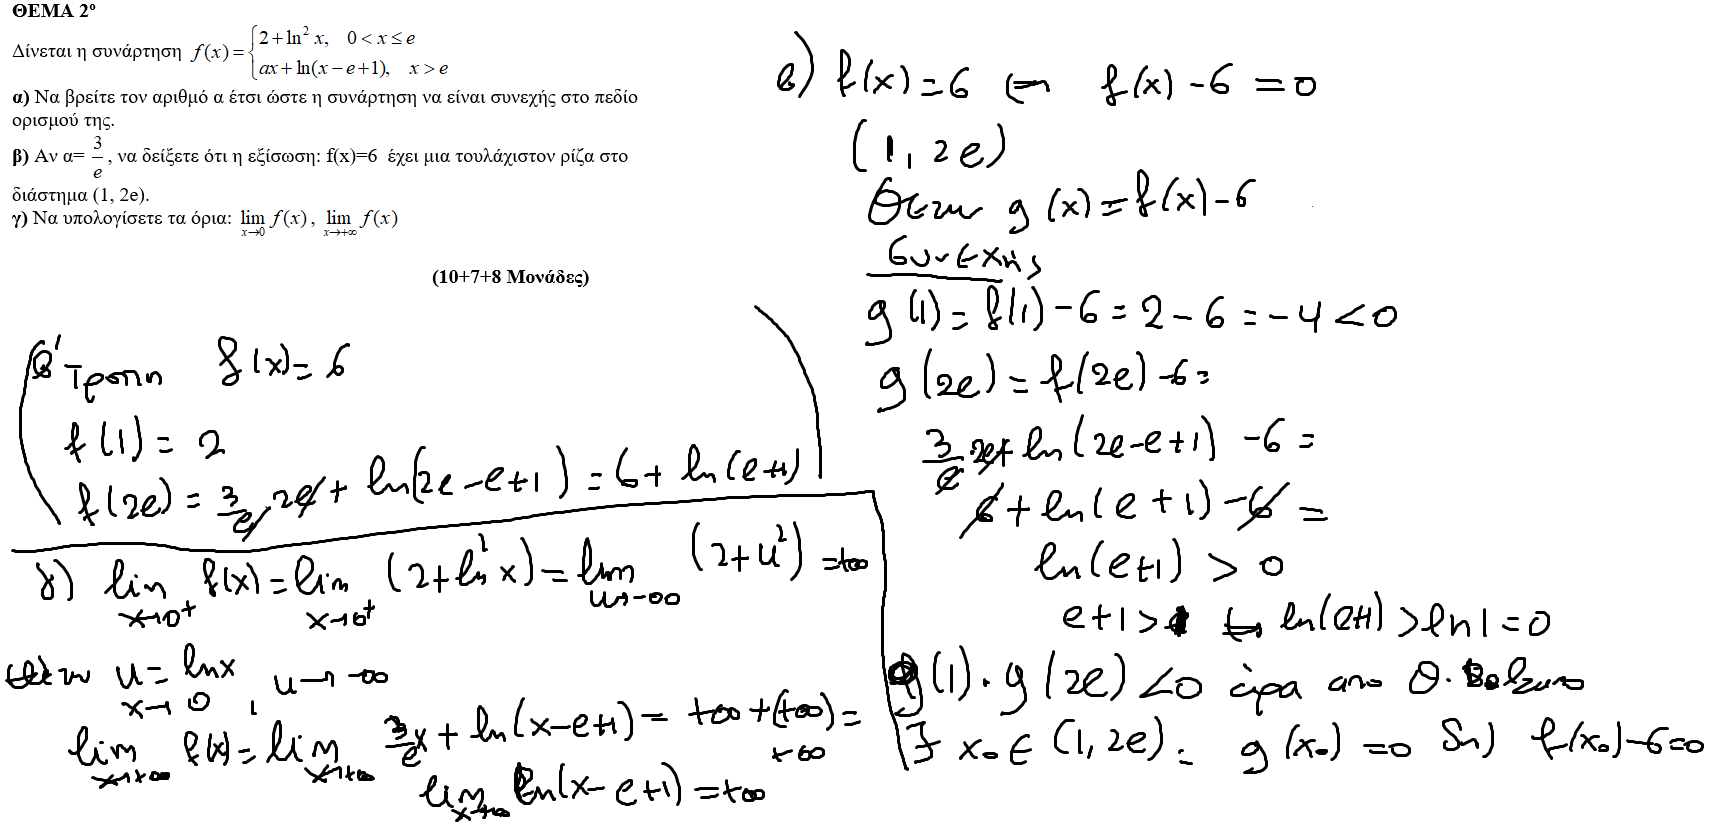 ΘΕΜΑ 2º
Δίνεται η συνάρτηση f(x) = { 2 + ln² x, 0 < x ≤ e
ax + ln(x − e + 1), x > e
α) Να βρείτε τον αριθμό α έτσι ώστε η συνάρτηση να είναι συνεχής στο πεδίο
ορισμού της.
β) Αν α= 3/e , να δείξετε ότι η εξίσωση: f(x)=6 έχει μια τουλάχιστον ρίζα στο
διάστημα (1, 2e).
γ) Να υπολογίσετε τα όρια: lim x→0 f(x) , lim x→+∞ f(x)
(10+7+8 Μονάδες)
β) f(x) = 6 ⟺ f(x) − 6 = 0
(1, 2e)
Θετω g(x) = f(x) − 6
συνεχής
g(1) = f(1) − 6 = 2 − 6 = −4 < 0
g(2e) = f(2e) − 6 =
3/e 2e + ln(2e−e+1) − 6 =
6 + ln(e+1) − 6 =
ln(e+1) > 0
e+1 > 1 ⟺ ln(e+1) > ln1 = 0
g(1) · g(2e) < 0 άρα απο Θ. Bolzano
∃ x₀ ∈ (1, 2e) : g(x₀) = 0 δηλ f(x₀) − 6 = 0
(β' τροπη f(x) = 6
f(1) = 2
f(2e) = 3/e 2e + ln(2e−e+1) = 6 + ln(e+1) )
γ) lim x→0⁺ f(x) = lim x→0⁺ (2 + ln² x) = lim u→−∞ (2 + u²) = +∞
θετω u = lnx
x→0 , u→−∞
lim x→+∞ f(x) = lim x→+∞ 3/e x + ln(x−e+1) = +∞ + (+∞) =
+∞
lim x→+∞ ln(x−e+1) = +∞